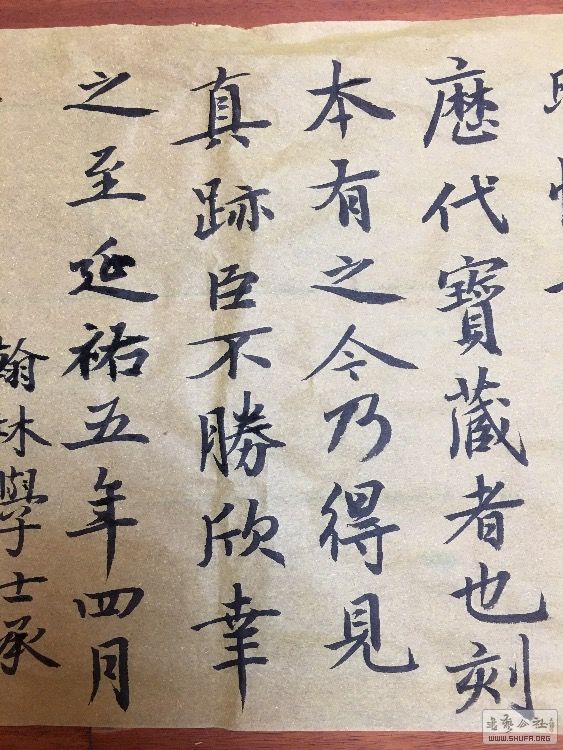 歷代寶藏者也刻
本有之今乃得見
真跡臣不勝欣幸
之至延祐五年四月
翰林學士承
书艺公社
WWW.SHUFA.ORG